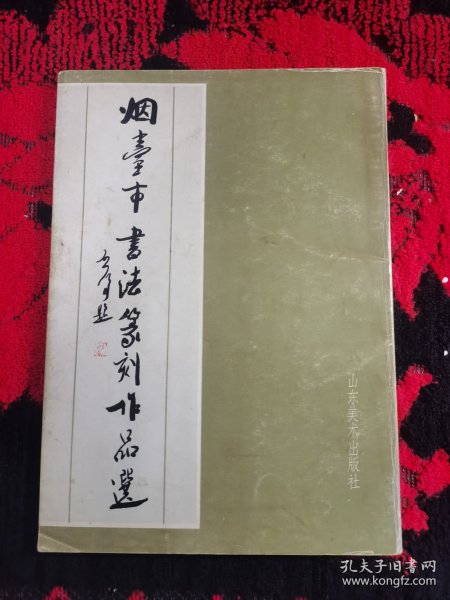 烟臺市書法篆刻作品選
山东美术出版社
孔夫子旧书网
www.kongfz.com